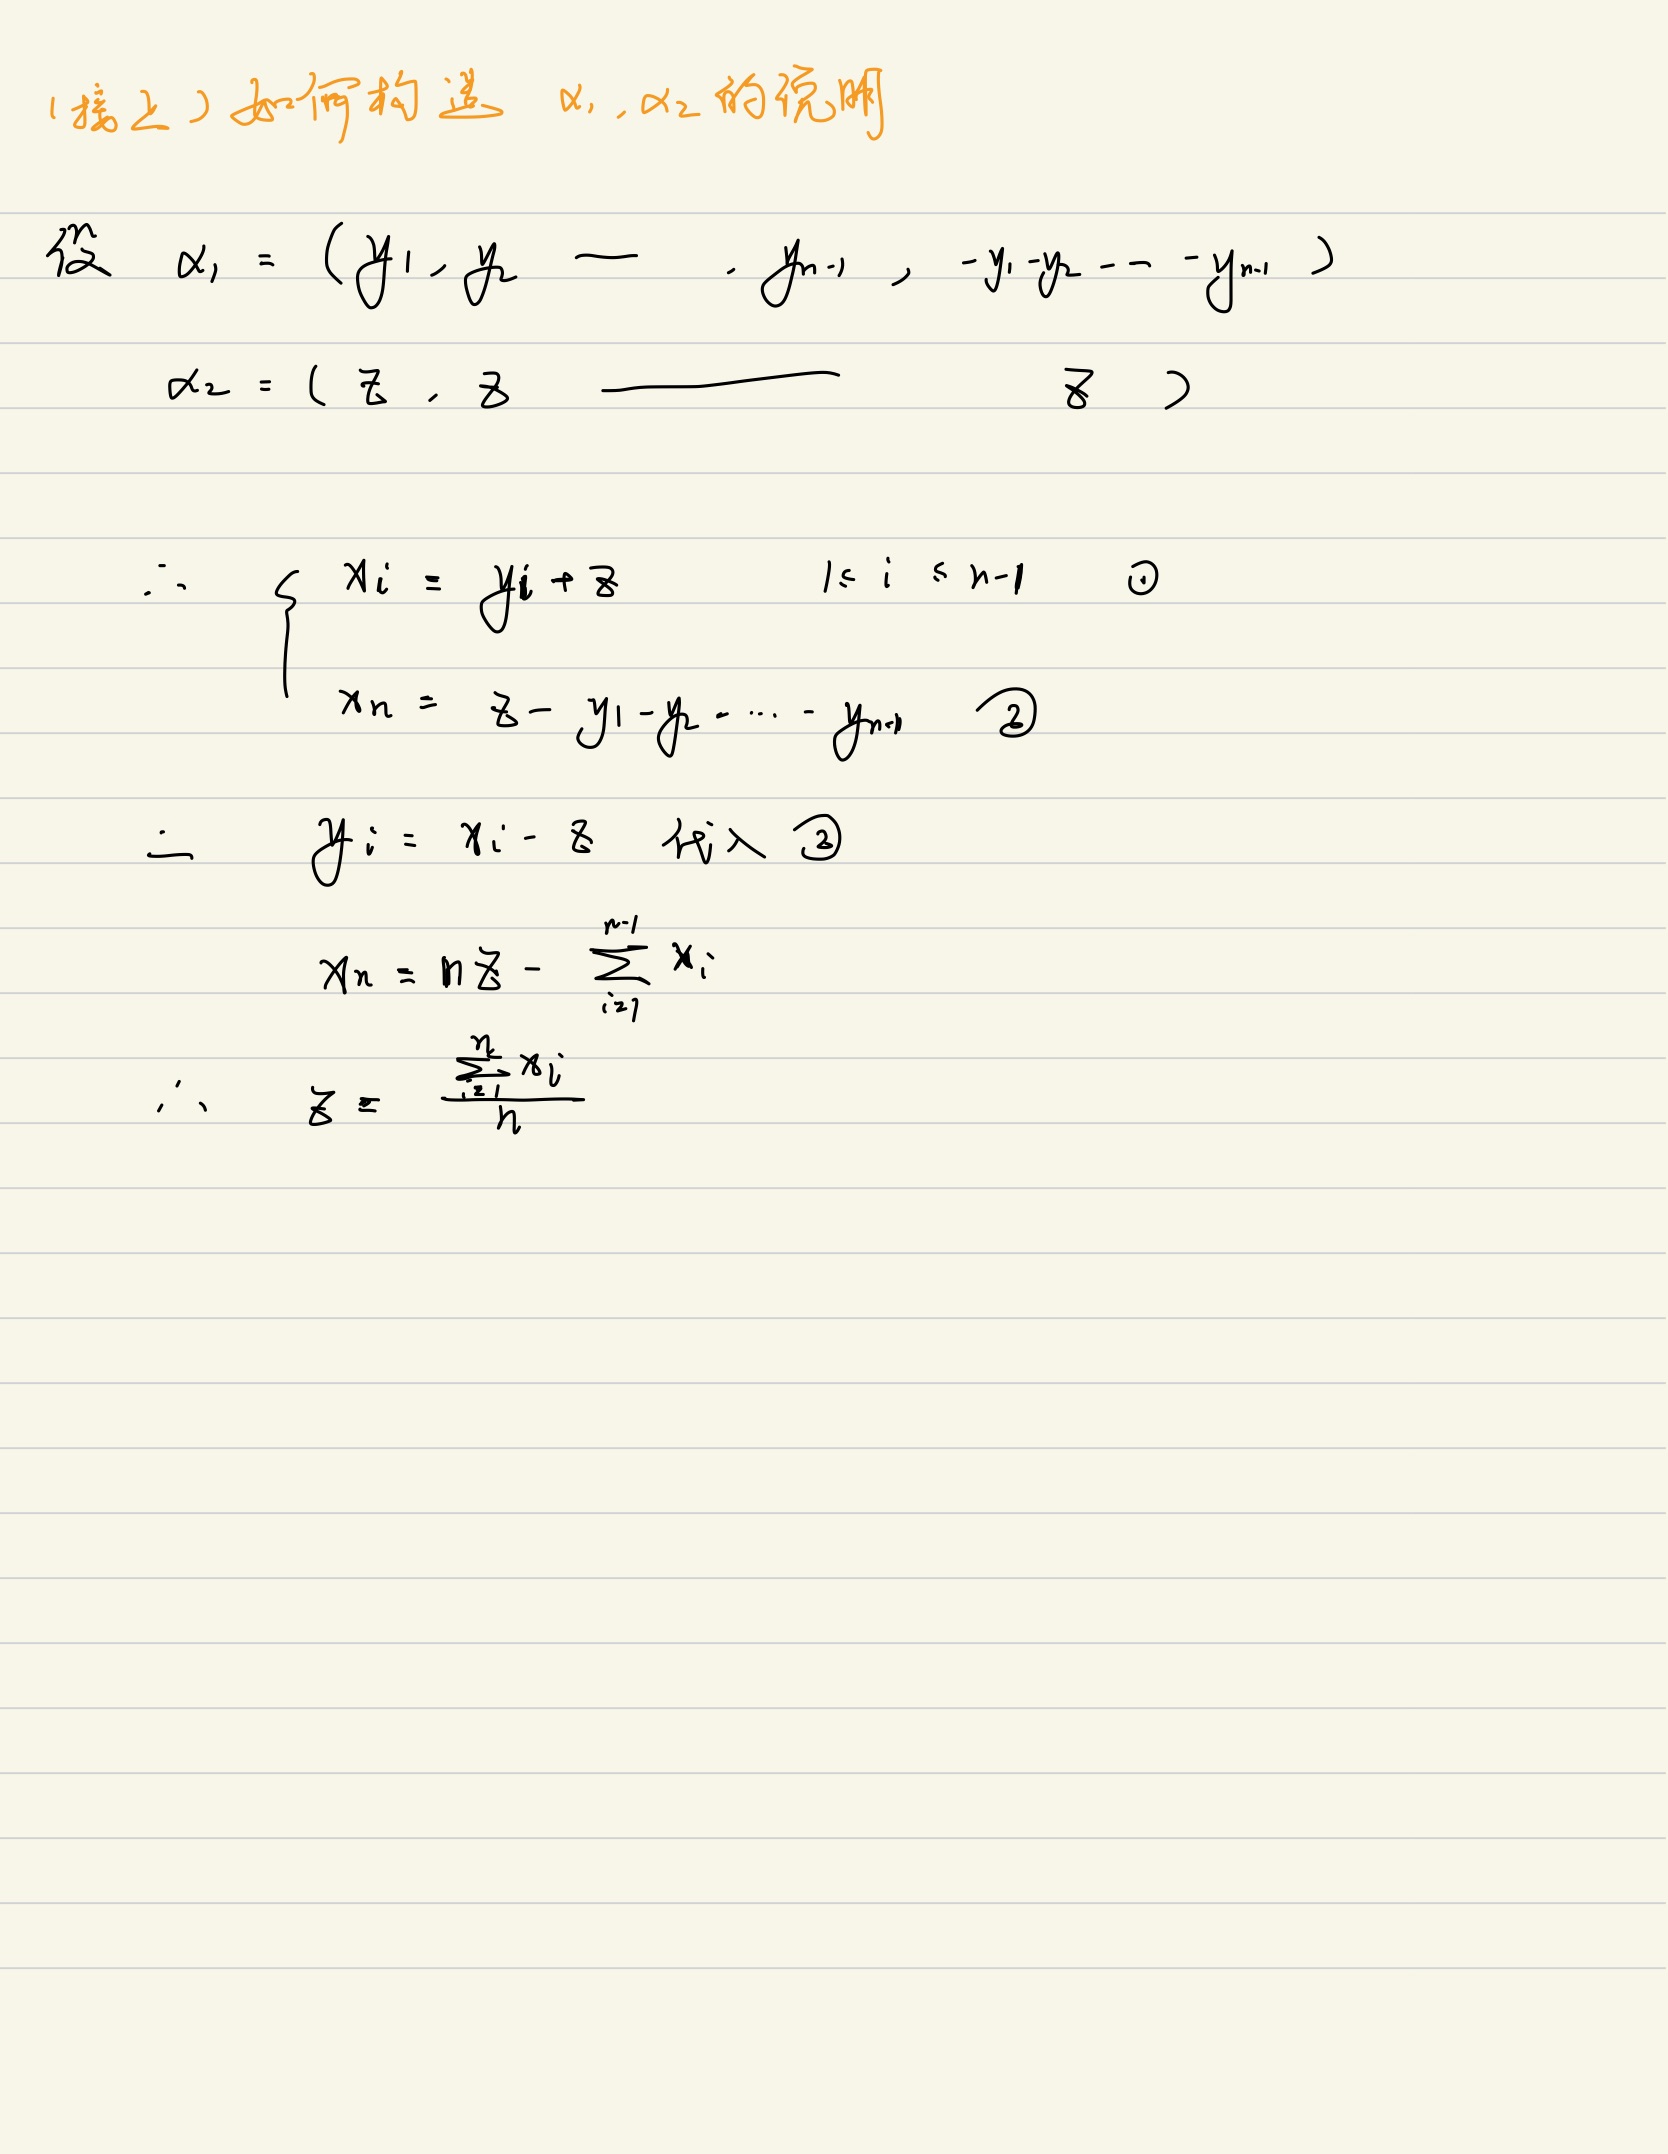 (接上)如何构造 α₁,α₂的说明
设 α₁ = (y₁, y₂ — , yₙ₋₁, -y₁-y₂-- -yₙ₋₁)
α₂ = (z, z —— z)
∴ { xᵢ = yᵢ + z 1≤ i ≤ n-1 ①
xₙ = z - y₁ - y₂ - ... - yₙ₋₁ ②
∴ yᵢ = xᵢ - z 代入 ②
xₙ = nz - ∑ᵢ₌₁ⁿ⁻¹ xᵢ
∴ z = (∑ᵢ₌₁ⁿ xᵢ)/n